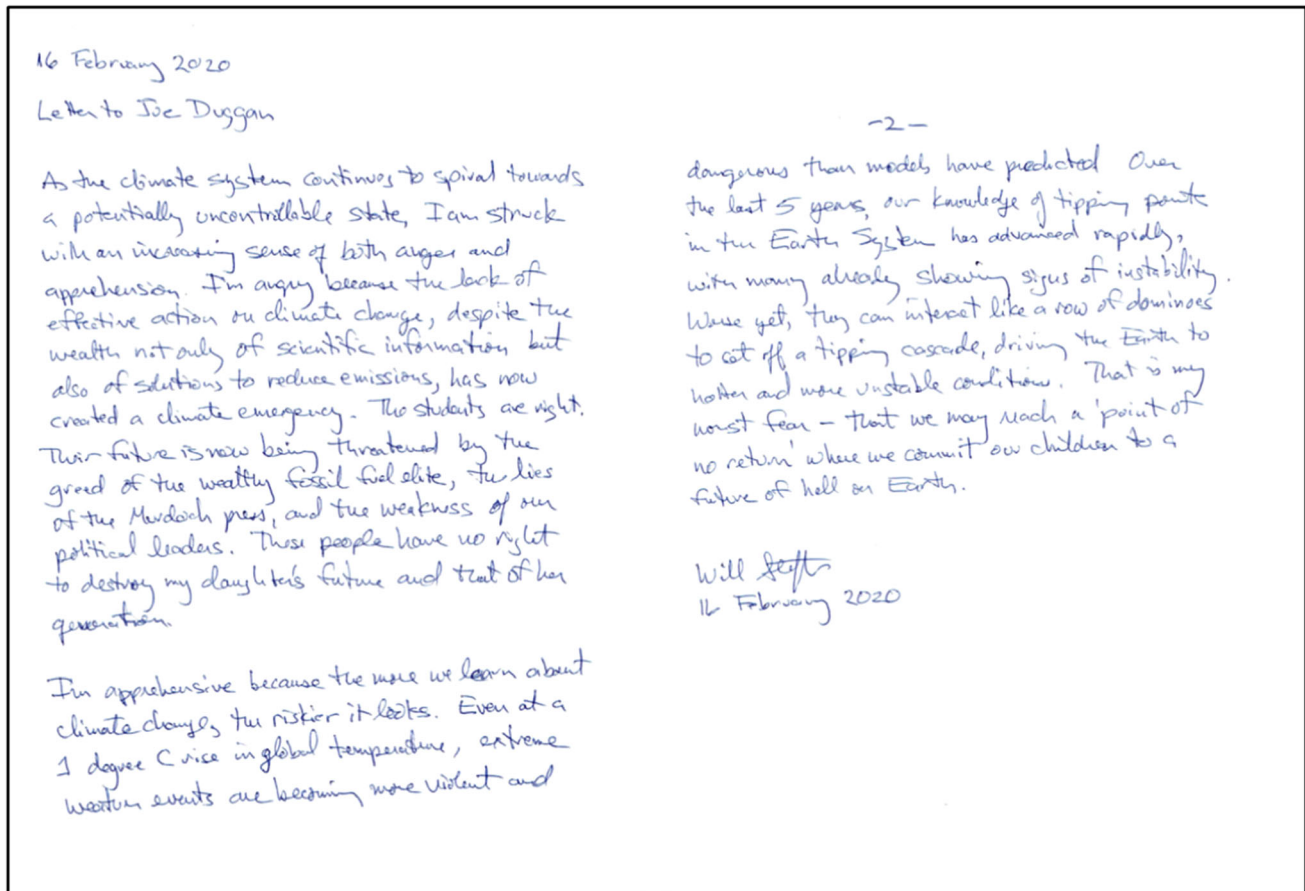 16 February 2020
Letter to Joe Duggan
As the climate system continues to spiral towards
a potentially uncontrollable state, I am struck
with an increasing sense of both anger and
apprehension. I'm angry because the lack of
effective action on climate change, despite the
wealth not only of scientific information but
also of solutions to reduce emissions, has now
created a climate emergency. The students are right.
Their future is now being threatened by the
greed of the wealthy fossil fuel elite, the lies
of the Murdoch press, and the weakness of our
political leaders. These people have no right
to destroy my daughter's future and that of her
generation.
I'm apprehensive because the more we learn about
climate change, the riskier it looks. Even at a
1 degree C rise in global temperature, extreme
weather events are becoming more violent and
-2-
dangerous than models have predicted Over
the last 5 years, our knowledge of tipping points
in the Earth System has advanced rapidly,
with many already showing signs of instability.
Worse yet, they can interact like a row of dominoes
to set off a tipping cascade, driving the Earth to
hotter and more unstable conditions. That is my
worst fear - that we may reach a 'point of
no return' where we commit our children to a
future of hell on Earth.
Will Steffen
16 February 2020